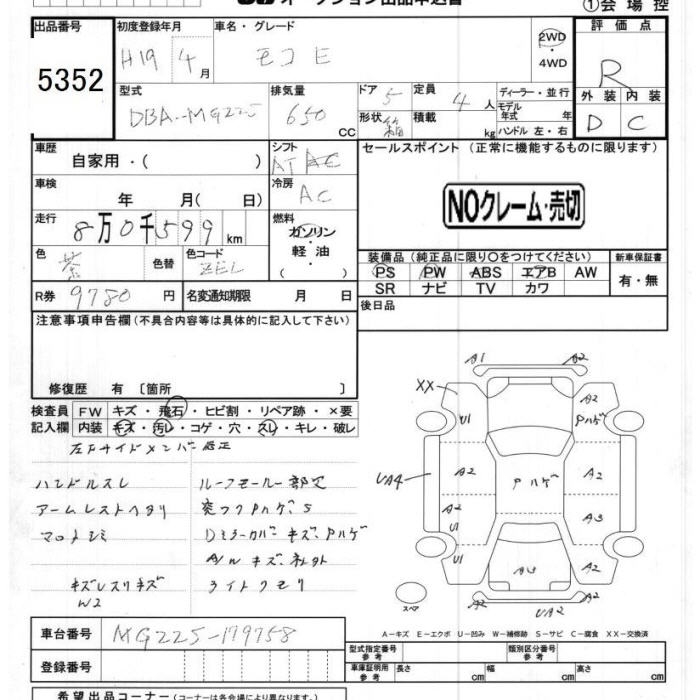 オークション出品申込書
①会場控
出品番号 初度登録年月 車名・グレード 評価点
5352 H19 4月 モコ E 2WD ・4WD R
型式 排気量 ドア 定員 ディーラー・並行
DBA-MG225 650 CC 5 4人 モデル年式 年
形状 箱 積載 kg ハンドル 左・右
外装 内装
D C
車歴 シフト セールスポイント (正常に機能するものに限ります)
自家用・( ) AT
車検 冷房
年 月( 日) AC
NOクレーム・売切
走行 燃料
8万0千599km ガソリン・軽油・
色 色替 色コード
茶 ZEL
装備品 (純正品に限り○をつけてください) 新車保証書
PS PW ABS エアB AW 有・無
SR ナビ TV カワ
R券 9780円 名変通知期限 月 日
後日品
注意事項申告欄 (不具合内容等は具体的に記入して下さい)
修復歴 有 〔箇所 〕
検査員 FW キズ・飛石・ヒビ割・リペア跡・×要
記入欄 内装 キズ・汚レ・コゲ・穴・スレ・キレ・破レ
左Fサイドメンバー修正
ハンドルスレ ルーフモール一部欠
アームレストヘタリ
マット シミ Dミラーカバーキズ・Pハゲ
A/W キズ、社外
キズレスリキズ ライトクモリ
W2
A1 A2
XX A2
U1 Pハゲ
A2 Pハゲ A2
UA4
A2 A3
U1
U1 A3 A2
A2 UA2
スペア
A−キズ E−エクボ U−凹み W−補修跡 S−サビ C−腐食 XX−交換済
車台番号 MG225-179758
型式指定番号 参考 類別区分番号 参考
登録番号
車庫証明用 参考 長さ cm 幅 cm 高さ cm
希望出品コーナー (コーナーは各会場により異なります。)